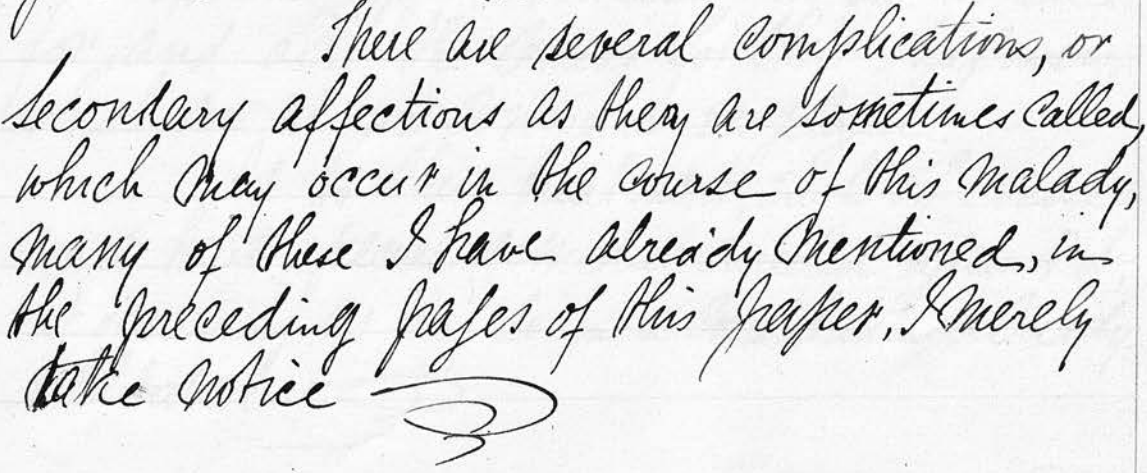 There are several complications, or
secondary affections as they are sometimes called,
which may occur in the course of this malady,
many of these I have already mentioned, in
the preceding pages of this paper, I merely
take notice